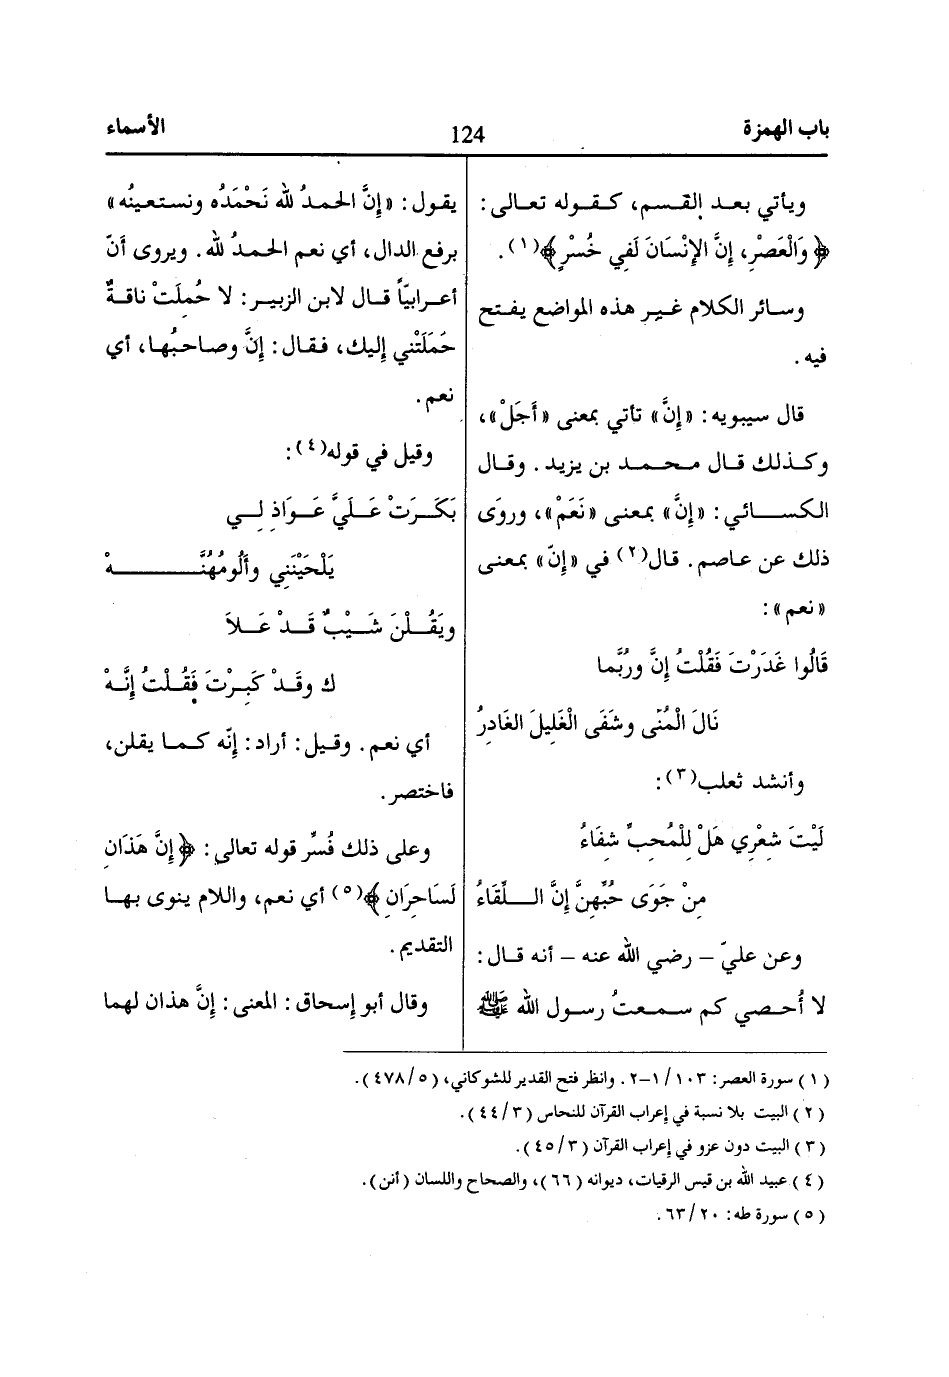 باب الهمزة
124
الأسماء
ويأتي بعد القسم، كقوله تعالى:
﴿وَالْعَصْرِ، إِنَّ الإِنْسَانَ لَفِي خُسْرٍ﴾(١).
وسائر الكلام غير هذه المواضع يفتح
فيه.
قال سيبويه: «إِنَّ» تأتي بمعنى «أَجَلْ»،
وكذلك قال محمد بن يزيد. وقال
الكسائي: «إِنَّ» بمعنى «نَعَمْ»، وروَى
ذلك عن عاصم. قال(٢) في «إِنّ» بمعنى
«نعم»:
قَالُوا غَدَرْتَ فَقُلْتُ إِنَّ ورُبَّما
نَالَ الْمُنَى وشَفَى الْغَلِيلَ الغَادِرُ
وأنشد ثعلب(٣):
لَيْتَ شِعْرِي هَلْ لِلْمُحِبِّ شِفَاءُ
مِنْ جَوَى حُبِّهِنَّ إِنَّ اللِّقَاءُ
وعن عليّ – رضي الله عنه – أنه قال:
لا أُحصي كم سمعتُ رسول الله ﷺ
يقول: «إِنَّ الحمدُ لله نَحْمَدُه ونستعينُه»
برفع الدال، أي نعم الحمدُ لله. ويروى أنّ
أعرابيّاً قال لابن الزبير: لا حُمِلَتْ ناقةٌ
حَمَلَتْني إليك، فقال: إِنَّ وصاحبُها، أي
نعم.
وقيل في قوله(٤):
بَكَرَتْ عَلَيَّ عَوَاذِلِي
يَلْحَيْنَنِي وأَلُومُهُنَّهْ
ويَقُلْنَ شَيْبٌ قَدْ عَلاَ
ك وقَدْ كَبِرْتَ فَقُلْتُ إِنَّهْ
أي نعم. وقيل: أراد: إنّه كما يقلن،
فاختصر.
وعلى ذلك فُسِّر قوله تعالى: ﴿إِنَّ هَذَانِ
لَسَاحِرَانِ﴾(٥) أي نعم، واللام ينوى بها
التقديم.
وقال أبو إسحاق: المعنى: إِنَّ هذان لهما
(١) سورة العصر: ١٠٣/ ١–٢. وانظر فتح القدير للشوكاني، (٥/ ٤٧٨).
(٢) البيت بلا نسبة في إعراب القرآن للنحاس (٣/ ٤٤).
(٣) البيت دون عزو في إعراب القرآن (٣/ ٤٥).
(٤) عبيد الله بن قيس الرقيات، ديوانه (٦٦)، والصحاح واللسان (أنن).
(٥) سورة طه: ٢٠/ ٦٣.